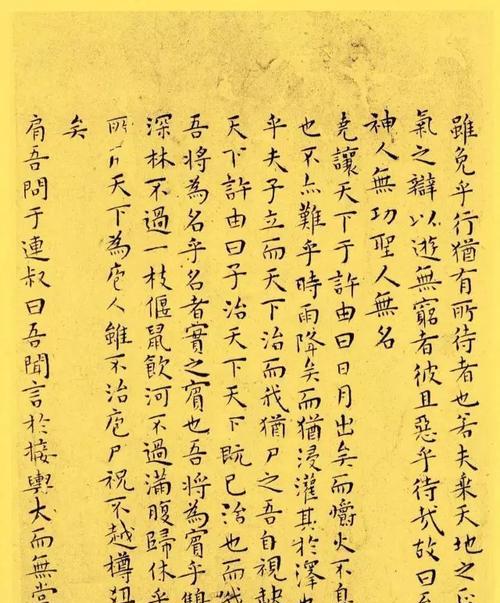 雖免乎行猶有所待者也若夫乘天地之正
氣之辯以遊無窮者彼且惡乎待哉故曰至
神人無功聖人無名
堯讓天下于許由曰日月出矣而爝火不息
也不亦難乎時雨降矣而猶浸灌其於澤也
乎夫子立而天下治而我猶尸之吾自視缺
天下許由曰子治天下天下既已治也而我
吾將為名乎名者實之賓也吾將為賓乎
深林不過一枝偃鼠飲河不過滿腹歸休乎
所用天下為庖人雖不治庖尸祝不越樽俎
矣
肩吾問于連叔曰吾聞言於接輿大而無當